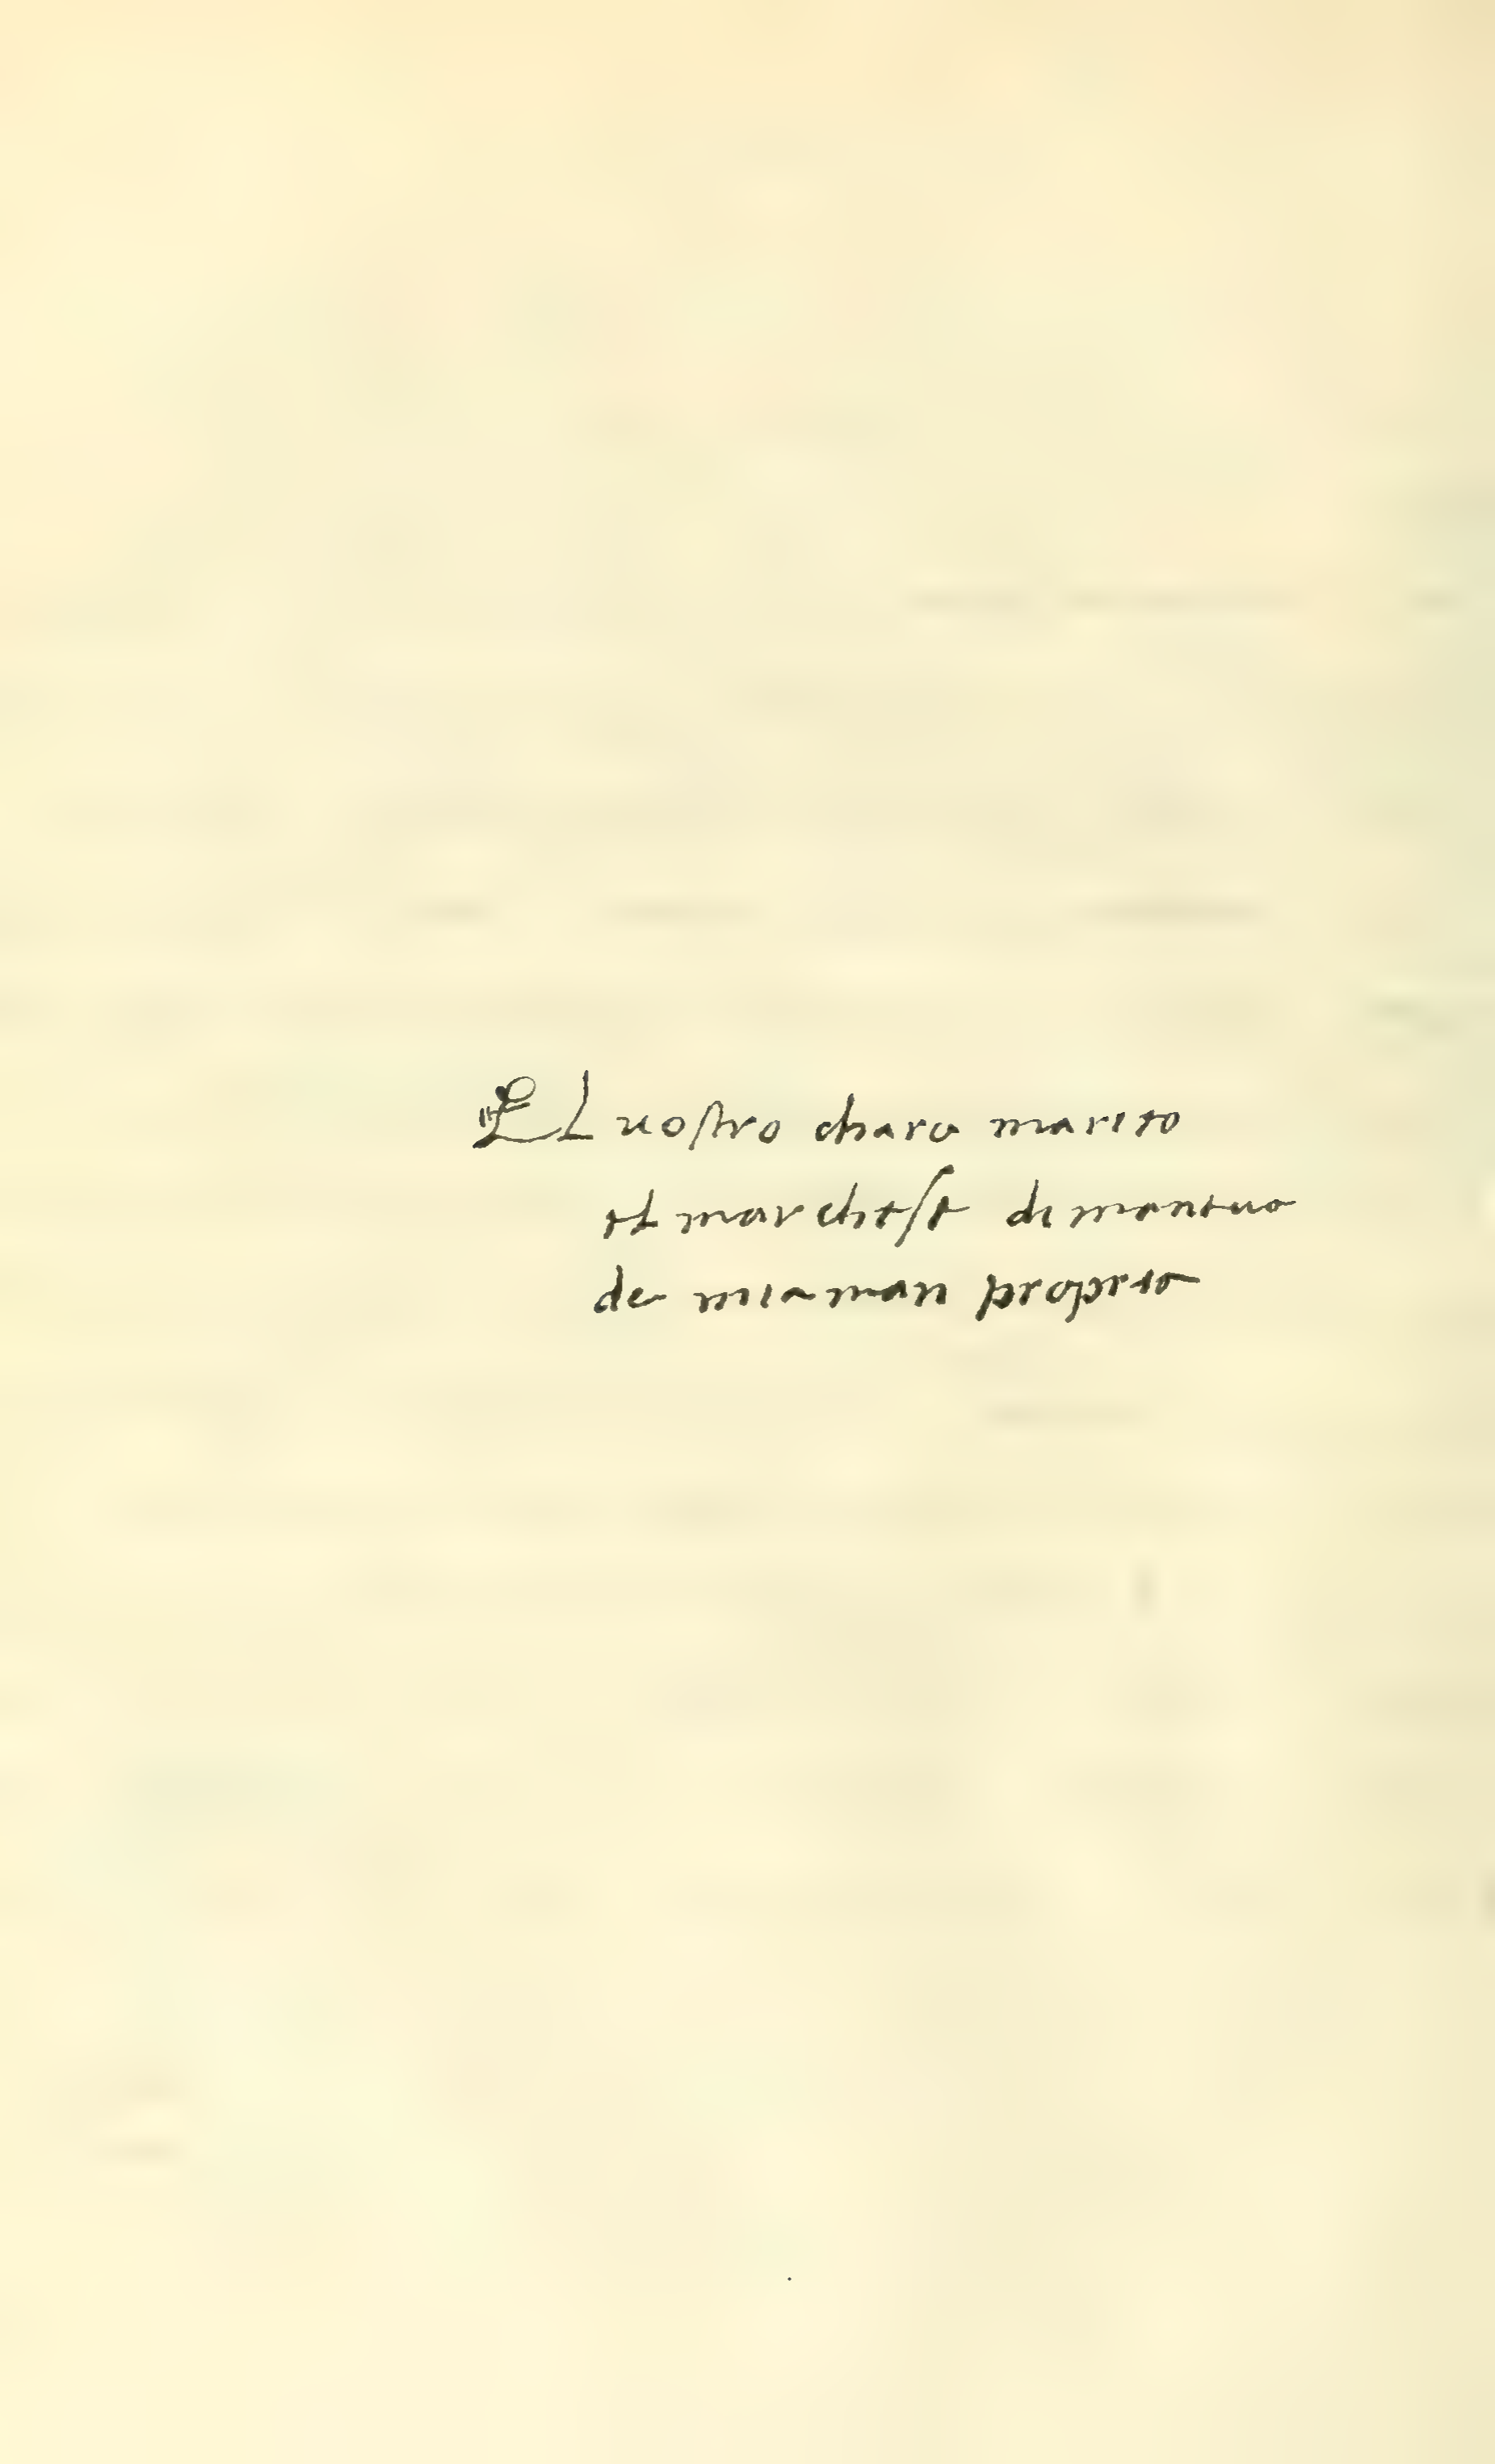 El uostro charo marito
el marcheſe di mantuo
de mia man proprio